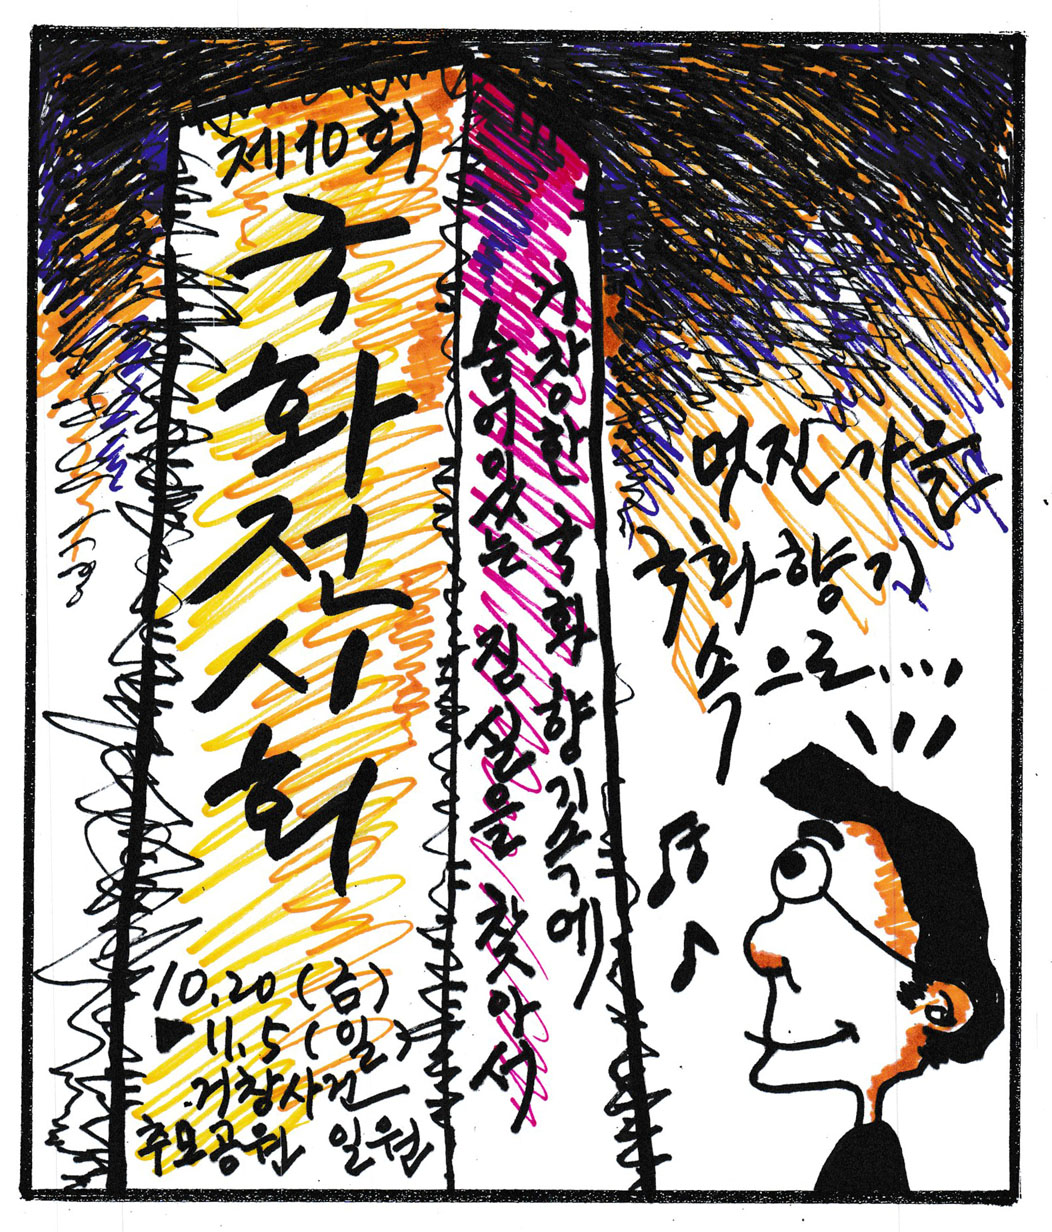 제10회
국화전시회
10.20 (금)
▶ 11.5 (일)
거창사건
추모공원 일원
거창한 국화 향기속에
숨어있는 진실을 찾아서
멋진 가을
국화향기
속으로....